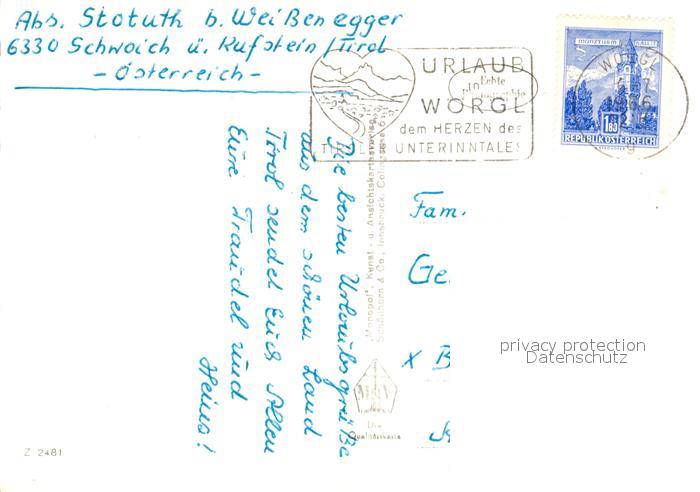 Abs. Stotuth b. Weißenegger
6330 Schwoich ü. Kufstein/Tirol
- Österreich -
URLAUB
in
WÖRGL
dem HERZEN des
UNTERINNTALES
Echte
MÜNZTURM HALL i. T.
WÖRGL
1.80
REPUBLIK ÖSTERREICH
Die besten Urlaubsgrüße
aus dem schönen Land
Tirol sendet Euch Allen
Eure Traudel und
Heinz!
"Monopol", Kunst- u. Ansichtskartenverlag,
Schöllhorn & Co., Innsbruck, Colingasse
Die
Qualitätskarte
Fam.
Ge
x B
privacy protection
Datenschutz
Z 2481